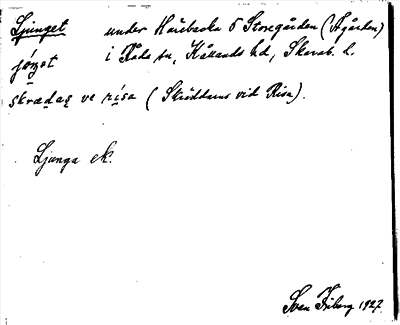 Ljunget under Harebacka 5 Storegården (Ågården)
jo̱ŋət i Råda sn, Kållands hd, Skarab. l.
skrædaṣ ve ri̱sa (Skräddarns vid Risa).
Ljunga ek.
Sven Friberg 1927.